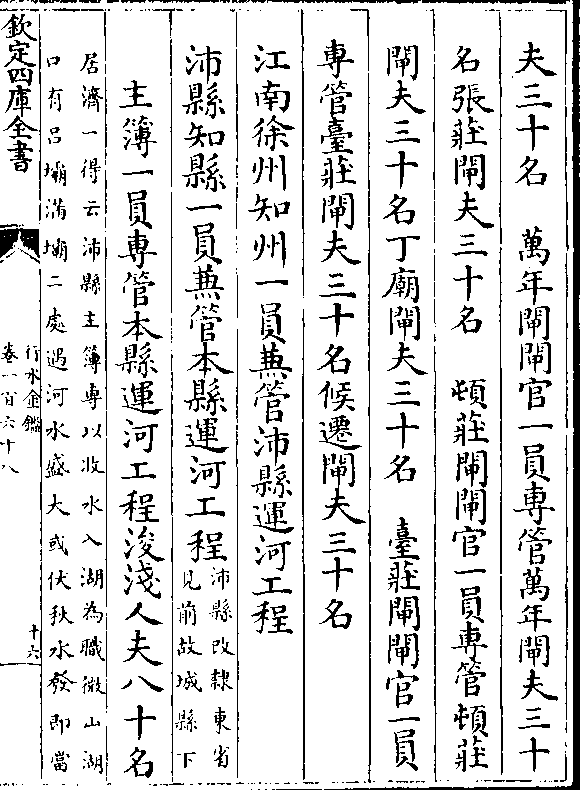 夫三十名　萬年閘閘官一員專管萬年閘夫三十
名張莊閘夫三十名　頓莊閘閘官一員專管頓莊
閘夫三十名丁廟閘夫三十名　臺莊閘閘官一員
專管臺莊閘夫三十名候遷閘夫三十名
江南徐州知州一員兼管沛縣運河工程
沛縣知縣一員兼管本縣運河工程沛縣改隷東省
見前故城縣下
主簿一員專管本縣運河工程浚淺人夫八十名
居濟一得云沛縣主簿專以收水入湖為職微山湖
口有吕壩滿壩二處遇河水盛大或伏秋水發即當
欽定四庫全書
行水金鑑
卷一百六十八
十六